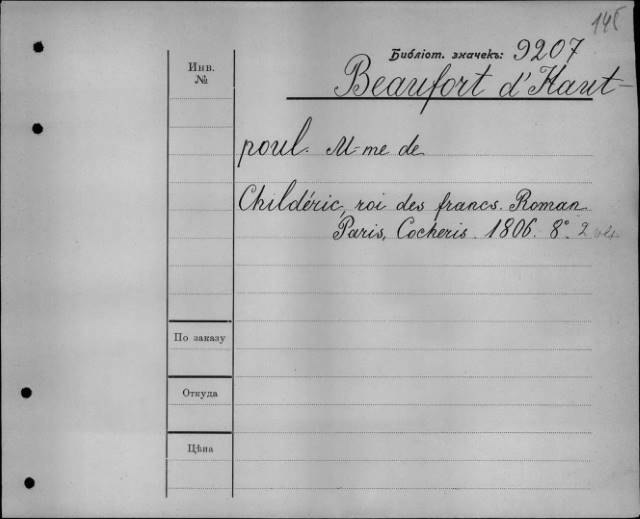 145
Библіот. значекъ: 9207
Инв.
№
Beaufort d'Haut-
poul. M-me de
Childéric, roi des francs. Roman
Paris, Cocheris. 1806. 8° 2 vol.
По заказу
Откуда
Цѣна